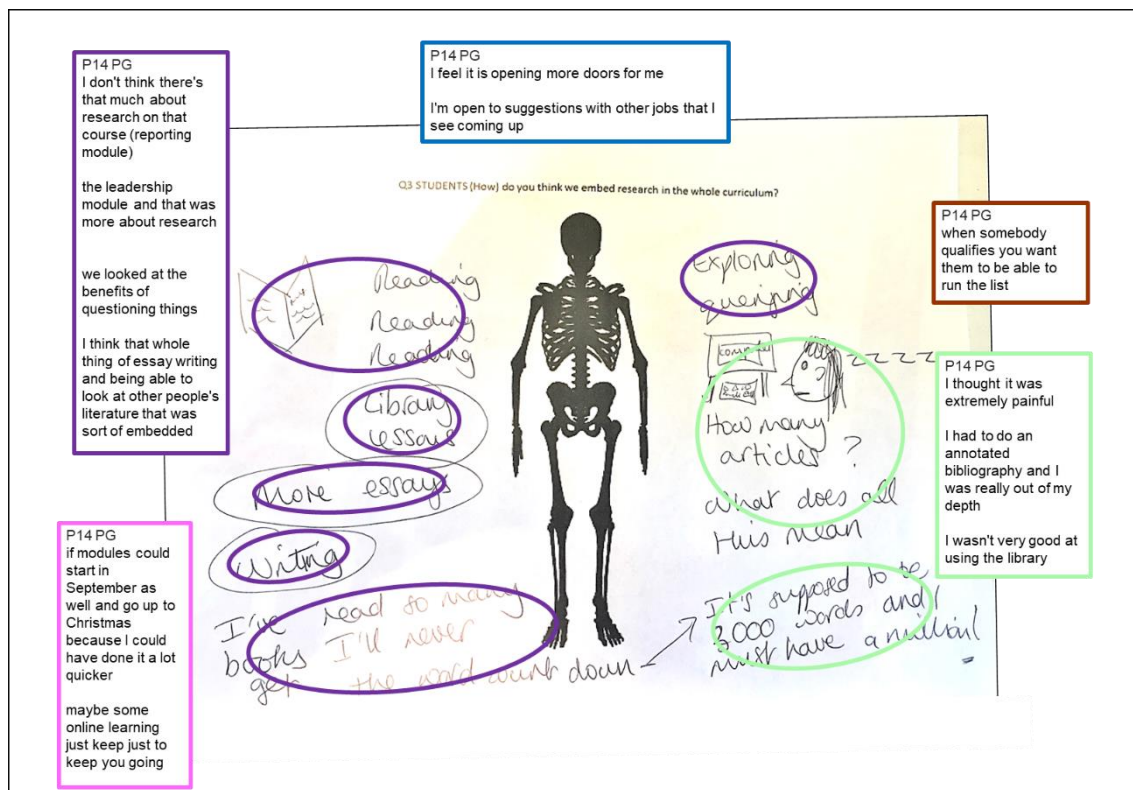 P14 PG
I don't think there's
that much about
research on that
course (reporting
module)
the leadership
module and that was
more about research
we looked at the
benefits of
questioning things
I think that whole
thing of essay writing
and being able to
look at other people's
literature that was
sort of embedded
P14 PG
I feel it is opening more doors for me
I'm open to suggestions with other jobs that I
see coming up
P14 PG
when somebody
qualifies you want
them to be able to
run the list
P14 PG
I thought it was
extremely painful
I had to do an
annotated
bibliography and I
was really out of my
depth
I wasn't very good at
using the library
P14 PG
if modules could
start in
September as
well and go up to
Christmas
because I could
have done it a lot
quicker
maybe some
online learning
just keep just to
keep you going
Q3 STUDENTS (How) do you think we embed research in the whole curriculum?
Reading
Reading
Reading
Library
essays
More essays
Writing
I've read so many
books I'll never
get the word count down
Exploring
querying
zzzz
How many
articles ?
What does all
this mean
It's supposed to be
3,000 words and I
must have a million!